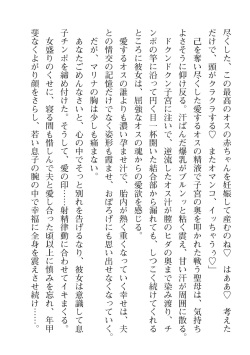 尽くした、この最高のオスの赤ちゃんを妊娠して産むのね♡　はぁぁ♡　考えた
だけで、頭がクラクラする♡　またオマンコ、イッちゃうぅ♡」
己を奪い尽くした愛するオスの精液で子宮の奥を叩かれた戦う聖母は、気持ち
よさそうに仰け反る。汗ばんだ爆乳がブルンッと震え、甘い汗が周囲に散る。
ドクンドクンと子宮に注いで、逆流したオス汁が膣のヒダの奥まで染み渡り、チ
ンポの竿に沿って円く目一杯開いた結合部から溢れても、しつこく続けてくれる
ところに彼女は、屈強なオスの魂からの愛欲を感じる。
愛するオスの誰よりも濃い孕ませ汁で、胎内が熱く重くなっていく幸せは、夫
との情交の記憶だけでなく姿形も霞ませ、おぼろげにも思い出せなくなっていく。
だが、マリナの胸は少しも痛まない。
あなたごめんなさいと、心の中でそっと別れを告げるなり、彼女は意識して息
子チンポを締め付けた。そうして、愛の印……射精律動に合わせてイキまくる。
女盛りのくせに、寝る間も惜しんで夫と愛し合った頃以上に慎みを忘れ、年甲
斐なくよがり顔をさらし、若い息子の腕の中で幸福に全身を震えさせ続け……。